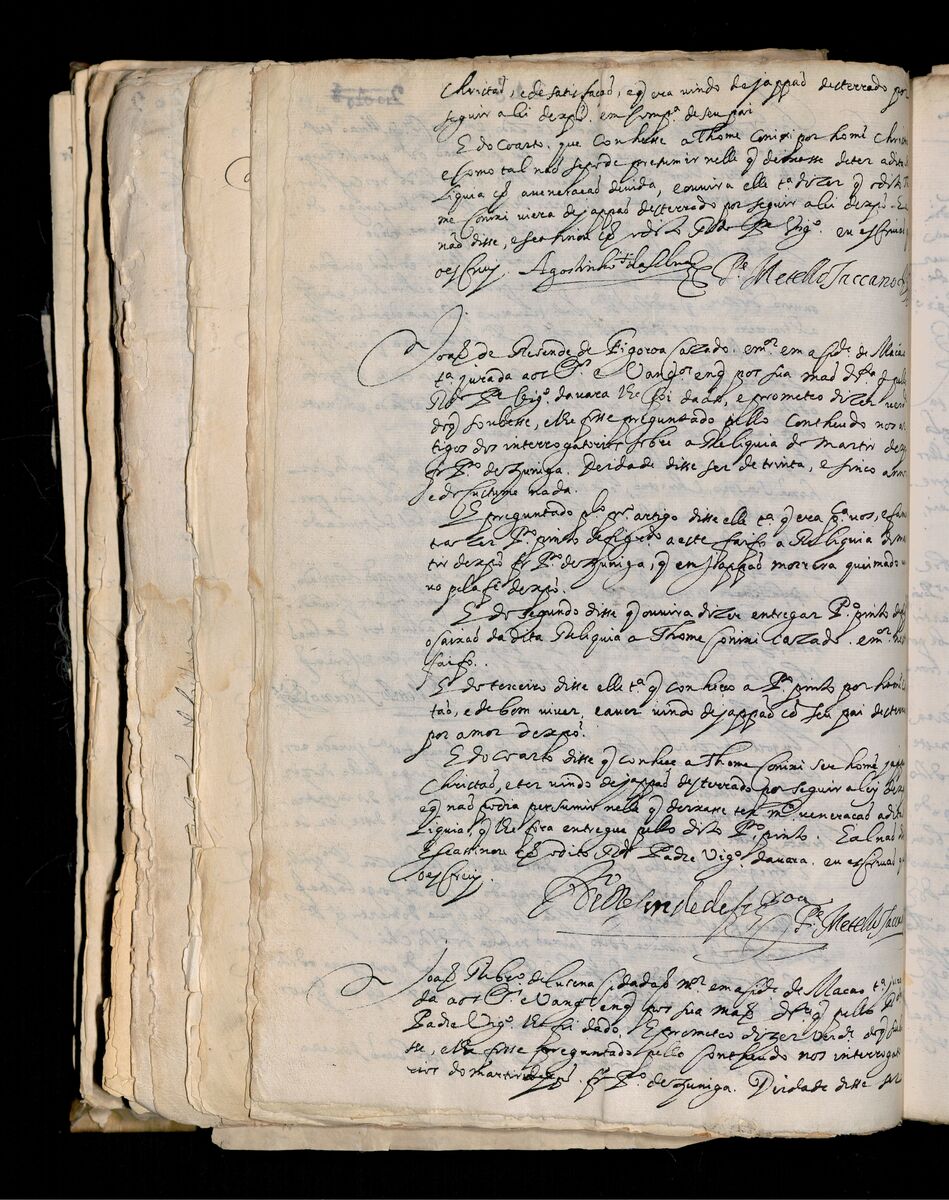 christaõ, e de satisfaçaõ, e q̃ era vindo de jappaõ desterrado por
seguir a lei de xp̃o em comp.ª de seu pai
E do coarto que conhesse a Thome conixi por home christ
e como tal naõ se pode presumir nelle q̃ deixasse de ter a dita
liquia cõ a veneracaõ devida, e ouvira elle t.ª dizer q̃ o dito Th
me conixi viera de jappaõ desterrado por seguir a lei de xp̃o. E
naõ disse, e se asinou cõ o dito P.e Vig.º eu escrivaõ q
o escrevj. Agostinho da Silva P.e Metello Saccano
Joaõ de Resende de Figeroa cazado e m.or em a sid.e de Macao
t.ª jurada aos S.tos E Vang.os em q̃ pos sua maõ d.ta q̃ pello
R.do P.e Vig.º da vara lhe foi dado, e prometeo dizer verd
do q̃ soubesse, e lhe fosse preguntado pello contheudo nos ar
tigos dos interrogatorios sobre a Reliquia do martir de xp̃o
fr P.º de Zuniga. De idade disse ser de trinta, e sinco annos
e do custume nada.
E preguntado p.lo pr.º artigo disse elle t.ª q̃ era p.co vos, e fama
trazer P.º pinto de figr.do a este faifo a Reliquia do mar
tir de xp̃o fr P.º de Zuniga, q̃ em Jappaõ morrera queimado vi
vo pela fé de xp̃o.
E do segundo disse q̃ ouvira dizer entregar P.º pinto de fi
o caixaõ da dita Reliquia a Thome conixi cazado e m.or neste
faifo.
E do terceiro disse elle t.ª q̃ conheceo a P.º pinto por bom chris
taõ, e de bem viver, e aver vindo de jappaõ cõ seu pai desterra
por amor de xp̃o.
E do coarto disse q̃ conhece a Thome conixi ser home jappaõ
christaõ, e ter vindo de jappaõ desterrado por seguir a lej de xp̃o
e q̃ naõ podia persumir nelle q̃ deixasse ter m.ta veneracaõ a dita
liquia, q̃ lhe fora entregue pello dito P.º pinto. E al naõ di
E se assinou cõ o dito R.do Padre Vig.º da vara. eu escrivaõ q
o escrevj.
J.º de Resende de fig.roa P.e Metello Sacca
Joaõ Rib.ro de lucena cidadaõ m.or em a sid.e de Macao t.ª jura
da aos S.tos E Vang.os em q̃ pos sua maõ d.ta q̃ pello R.do
Padre Vig.º lhe foi dado. E prometeo dizer verd.e do q̃ soube
sse, e lhe fosse preguntado pello contheudo nos interrogat
rios do martir de xp̃o fr P.º de Zuniga. De idade disse ser